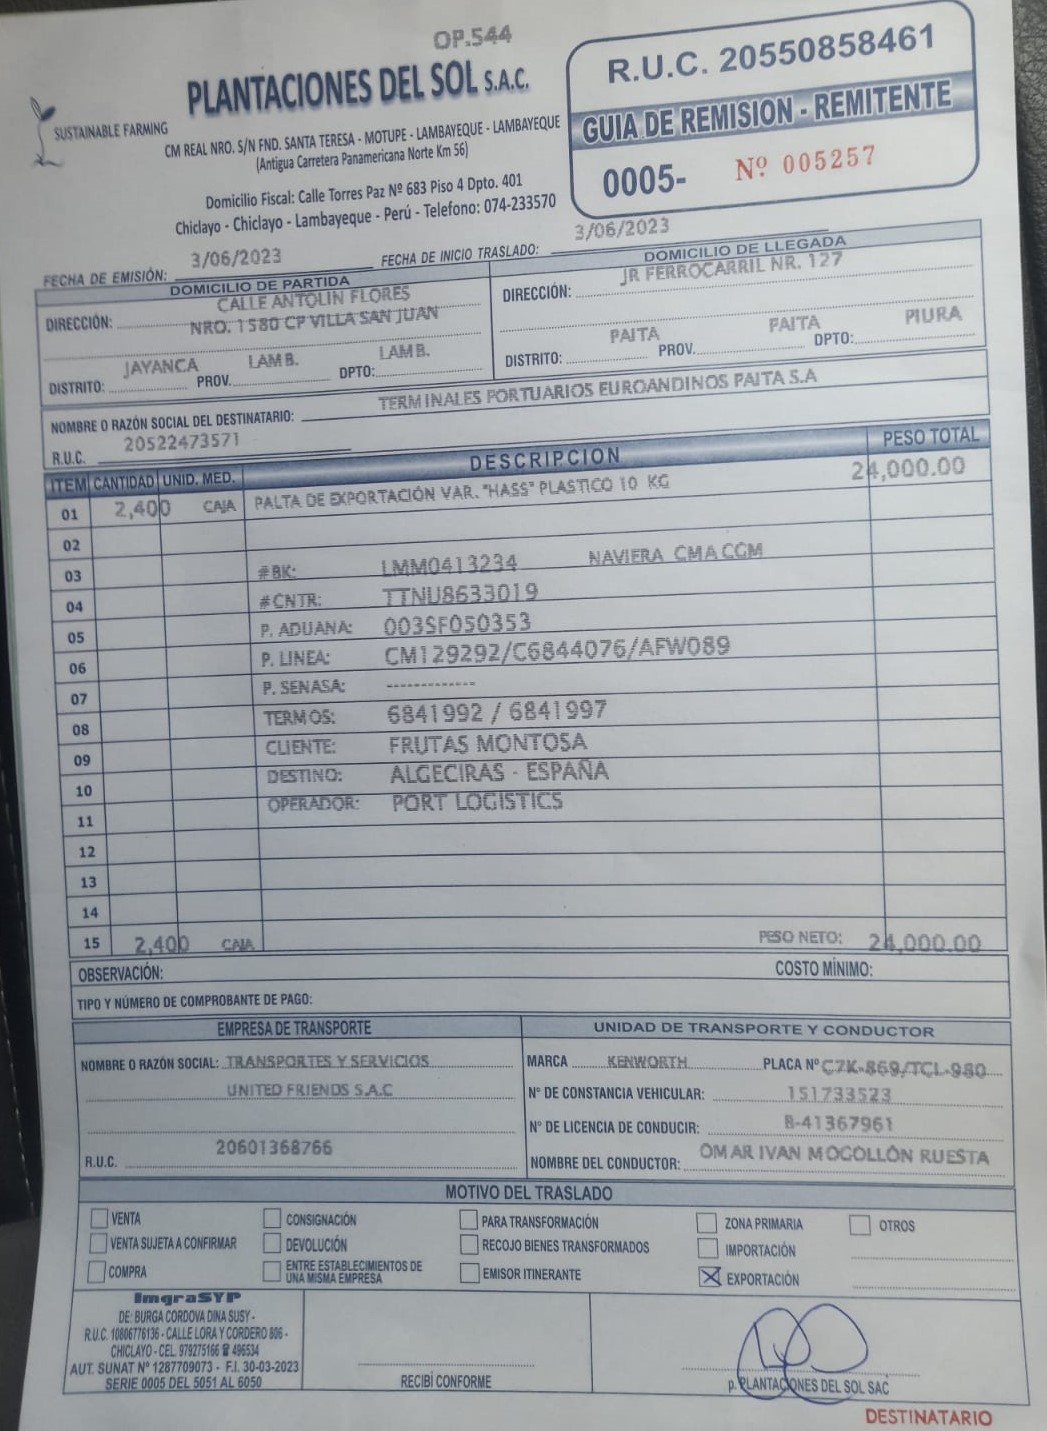 OP.544
PLANTACIONES DEL SOL S.A.C.
SUSTAINABLE FARMING
CM REAL NRO. S/N FND. SANTA TERESA - MOTUPE - LAMBAYEQUE - LAMBAYEQUE
(Antigua Carretera Panamericana Norte Km 56)
Domicilio Fiscal: Calle Torres Paz Nº 683 Piso 4 Dpto. 401
Chiclayo - Chiclayo - Lambayeque - Perú - Telefono: 074-233570
R.U.C. 20550858461
GUIA DE REMISION - REMITENTE
0005- Nº 005257
FECHA DE EMISIÓN: 3/06/2023 FECHA DE INICIO TRASLADO: 3/06/2023
DOMICILIO DE PARTIDA
DIRECCIÓN: CALLE ANTOLIN FLORES
NRO. 1580 CP VILLA SAN JUAN
DISTRITO: JAYANCA PROV. LAMB. DPTO: LAMB.
DOMICILIO DE LLEGADA
DIRECCIÓN: JR FERROCARRIL NR. 127
DISTRITO: PAITA PROV. PAITA DPTO: PIURA
NOMBRE O RAZÓN SOCIAL DEL DESTINATARIO: TERMINALES PORTUARIOS EUROANDINOS PAITA S.A
R.U.C. 20522473571
ITEM CANTIDAD UNID. MED. DESCRIPCION PESO TOTAL
01 2,400 CAJA PALTA DE EXPORTACIÓN VAR. "HASS" PLASTICO 10 KG 24,000.00
02
03 #BK: LMM0413234 NAVIERA CMA CGM
04 #CNTR: TTNU8633019
05 P. ADUANA: 003SF050353
06 P. LINEA: CM129292/C6844076/AFW089
07 P. SENASA: -------------
08 TERMOS: 6841992 / 6841997
09 CLIENTE: FRUTAS MONTOSA
10 DESTINO: ALGECIRAS - ESPAÑA
11 OPERADOR: PORT LOGISTICS
12
13
14
15 2,400 CAJA PESO NETO: 24,000.00
OBSERVACIÓN: COSTO MÍNIMO:
TIPO Y NÚMERO DE COMPROBANTE DE PAGO:
EMPRESA DE TRANSPORTE
NOMBRE O RAZÓN SOCIAL: TRANSPORTES Y SERVICIOS
UNITED FRIENDS S.A.C
R.U.C. 20601368766
UNIDAD DE TRANSPORTE Y CONDUCTOR
MARCA KENWORTH PLACA Nº C7K-869/TCL-980
Nº DE CONSTANCIA VEHICULAR: 151733523
Nº DE LICENCIA DE CONDUCIR: B-41367961
NOMBRE DEL CONDUCTOR: OMAR IVAN MOGOLLÓN RUESTA
MOTIVO DEL TRASLADO
VENTA CONSIGNACIÓN PARA TRANSFORMACIÓN ZONA PRIMARIA OTROS
VENTA SUJETA A CONFIRMAR DEVOLUCIÓN RECOJO BIENES TRANSFORMADOS IMPORTACIÓN
COMPRA ENTRE ESTABLECIMIENTOS DE EMISOR ITINERANTE EXPORTACIÓN
UNA MISMA EMPRESA
ImgraSYP
DE: BURGA CORDOVA DINA SUSY -
R.U.C. 10806776136 - CALLE LORA Y CORDERO 806 -
CHICLAYO - CEL. 979275166 ☎ 496534
AUT. SUNAT Nº 1287709073 - F.I. 30-03-2023
SERIE 0005 DEL 5051 AL 6050
RECIBÍ CONFORME
p. PLANTACIONES DEL SOL SAC
DESTINATARIO